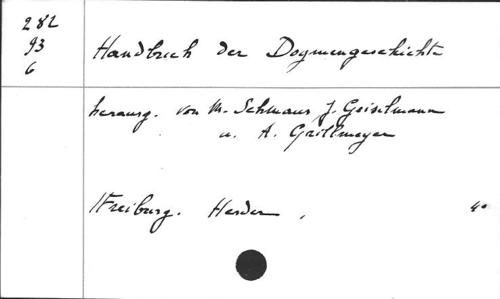 282
93
6
Handbuch der Dogmengeschichte
herausg. von M. Schmaus J. Geiselmann
u. A. Grillmeyer
Freiburg. Herder,
4°